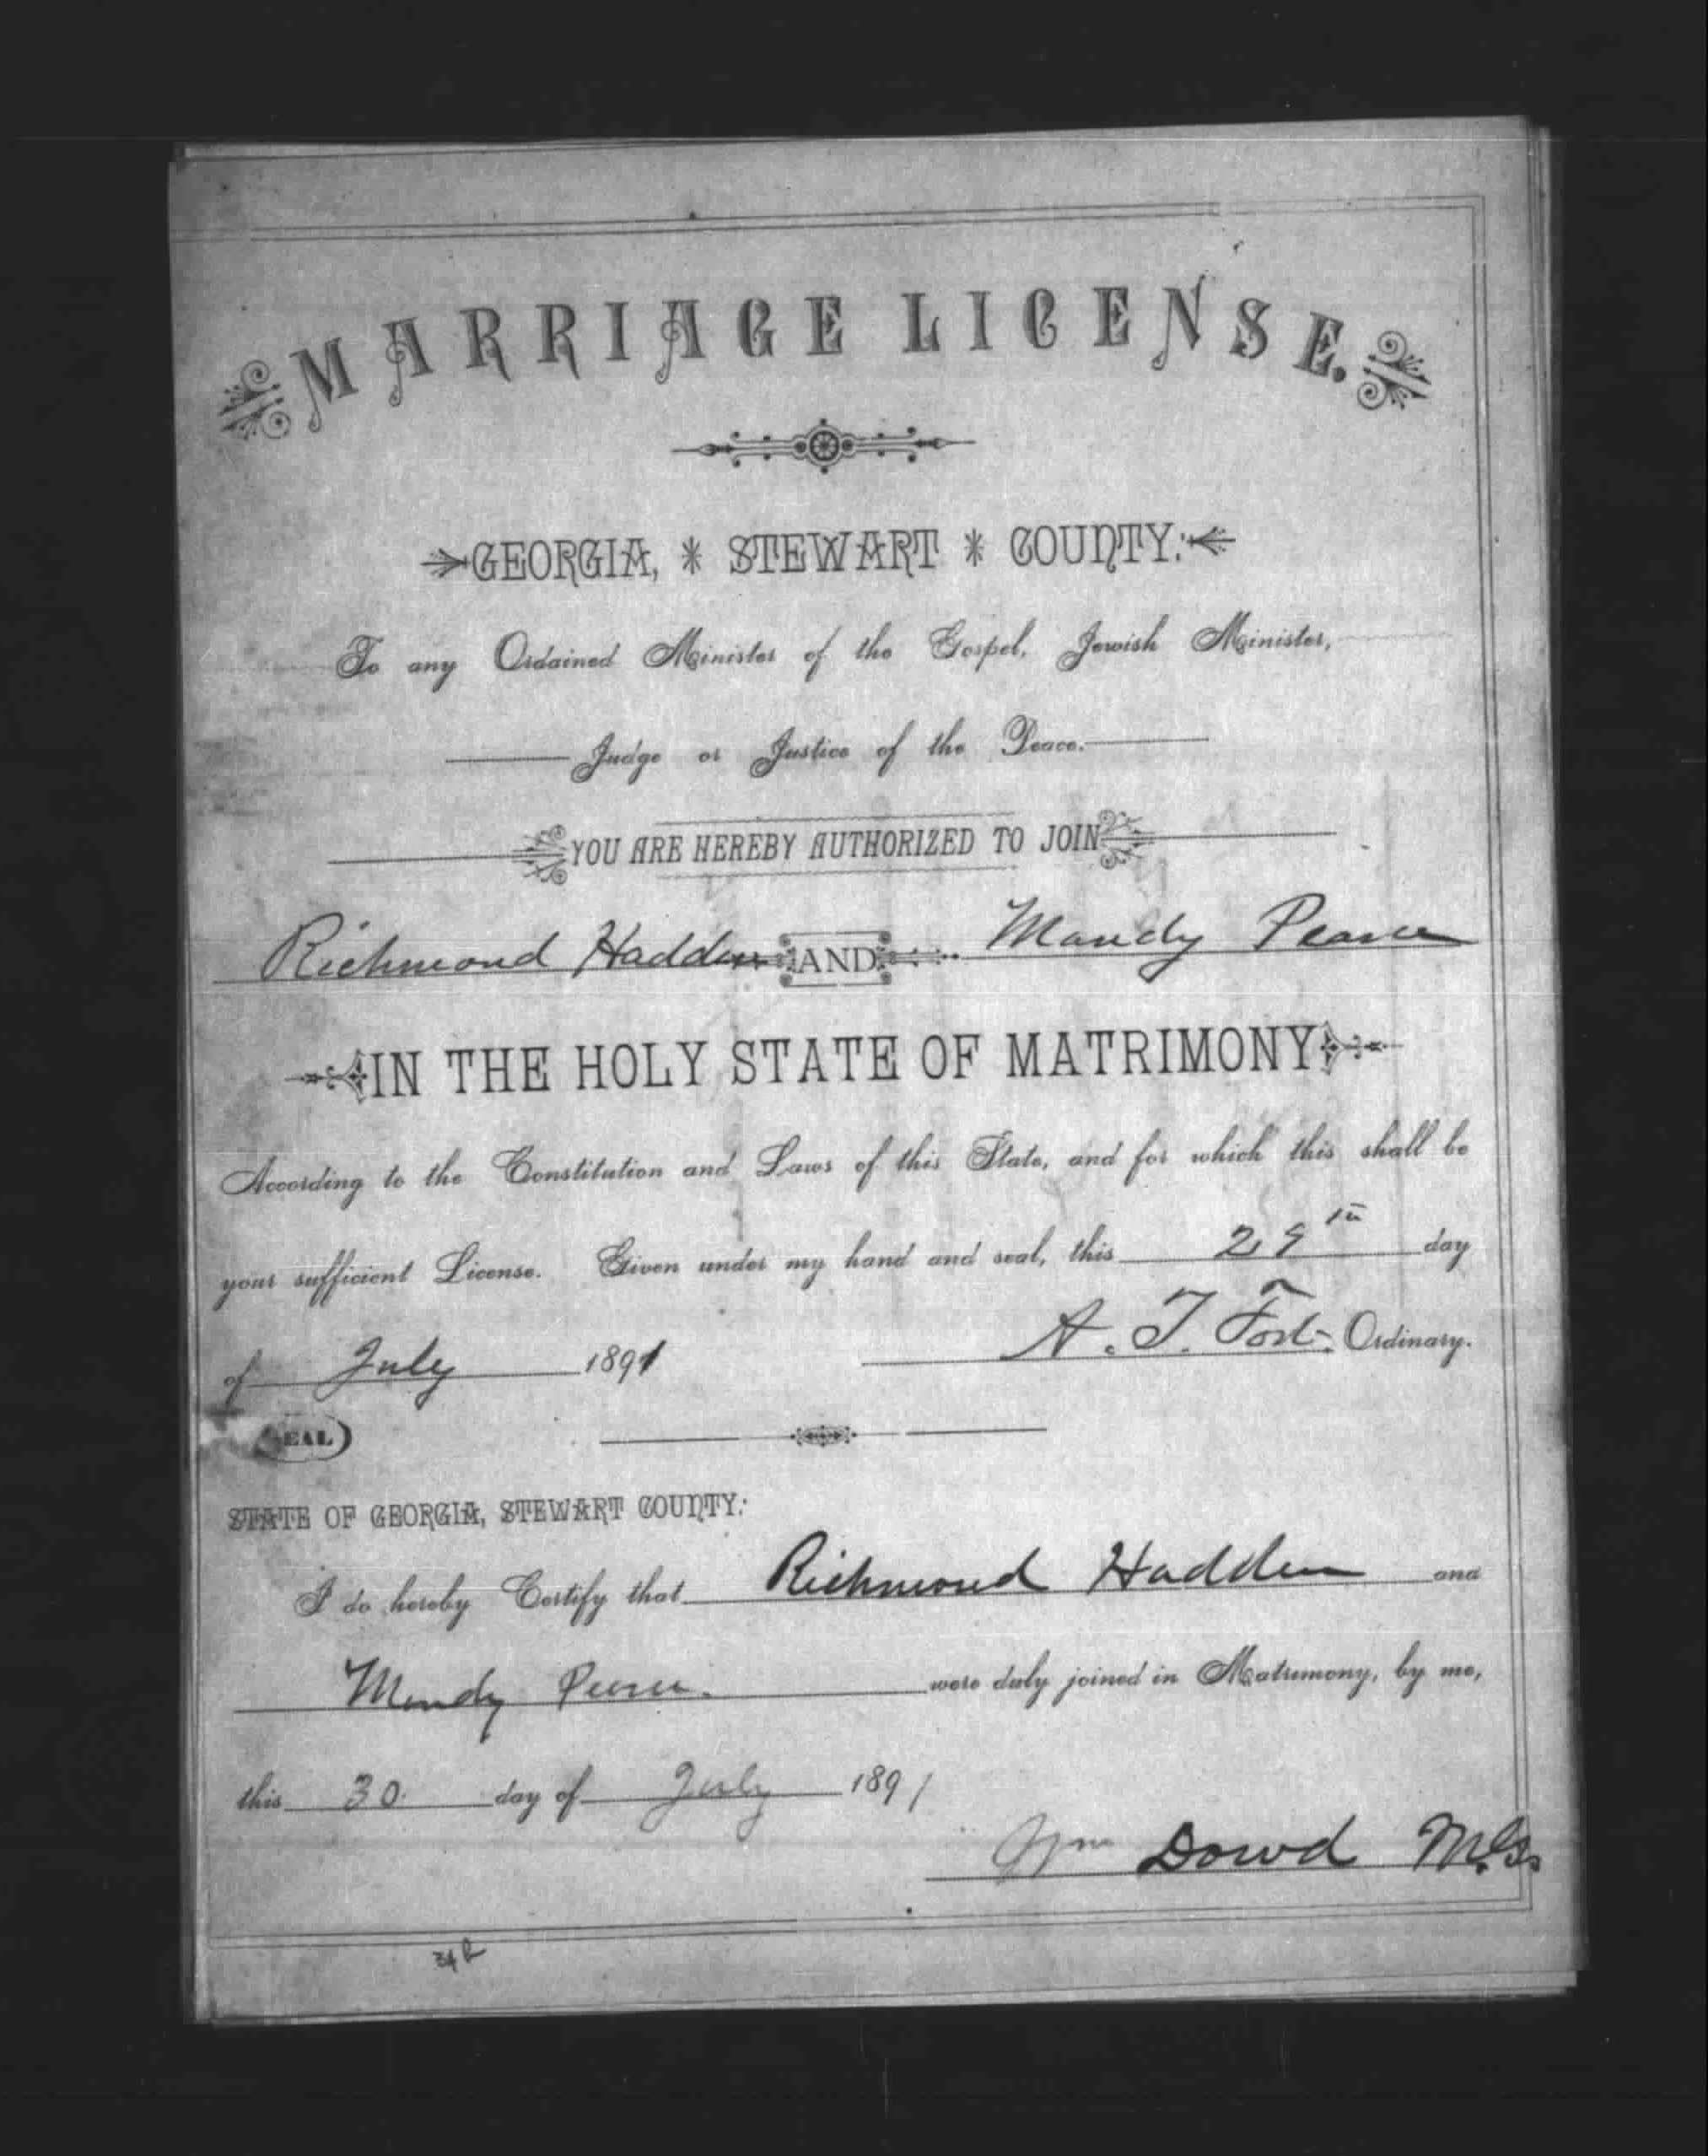 MARRIAGE LICENSE.
GEORGIA, * STEWART * COUNTY:
To any Ordained Minister of the Gospel, Jewish Minister,
Judge or Justice of the Peace.
YOU ARE HEREBY AUTHORIZED TO JOIN
Richmond Hadden AND Mandy Pearce
IN THE HOLY STATE OF MATRIMONY
According to the Constitution and Laws of this State, and for which this shall be
your sufficient License. Given under my hand and seal, this 29th day
of July 1891 A. T. Fort Ordinary.
EAL)
STATE OF GEORGIA, STEWART COUNTY:
I do hereby Certify that Richmond Hadden and
Mandy were duly joined in Matrimony, by me,
this 30 day of July 1891
Wm Dowd M.G.